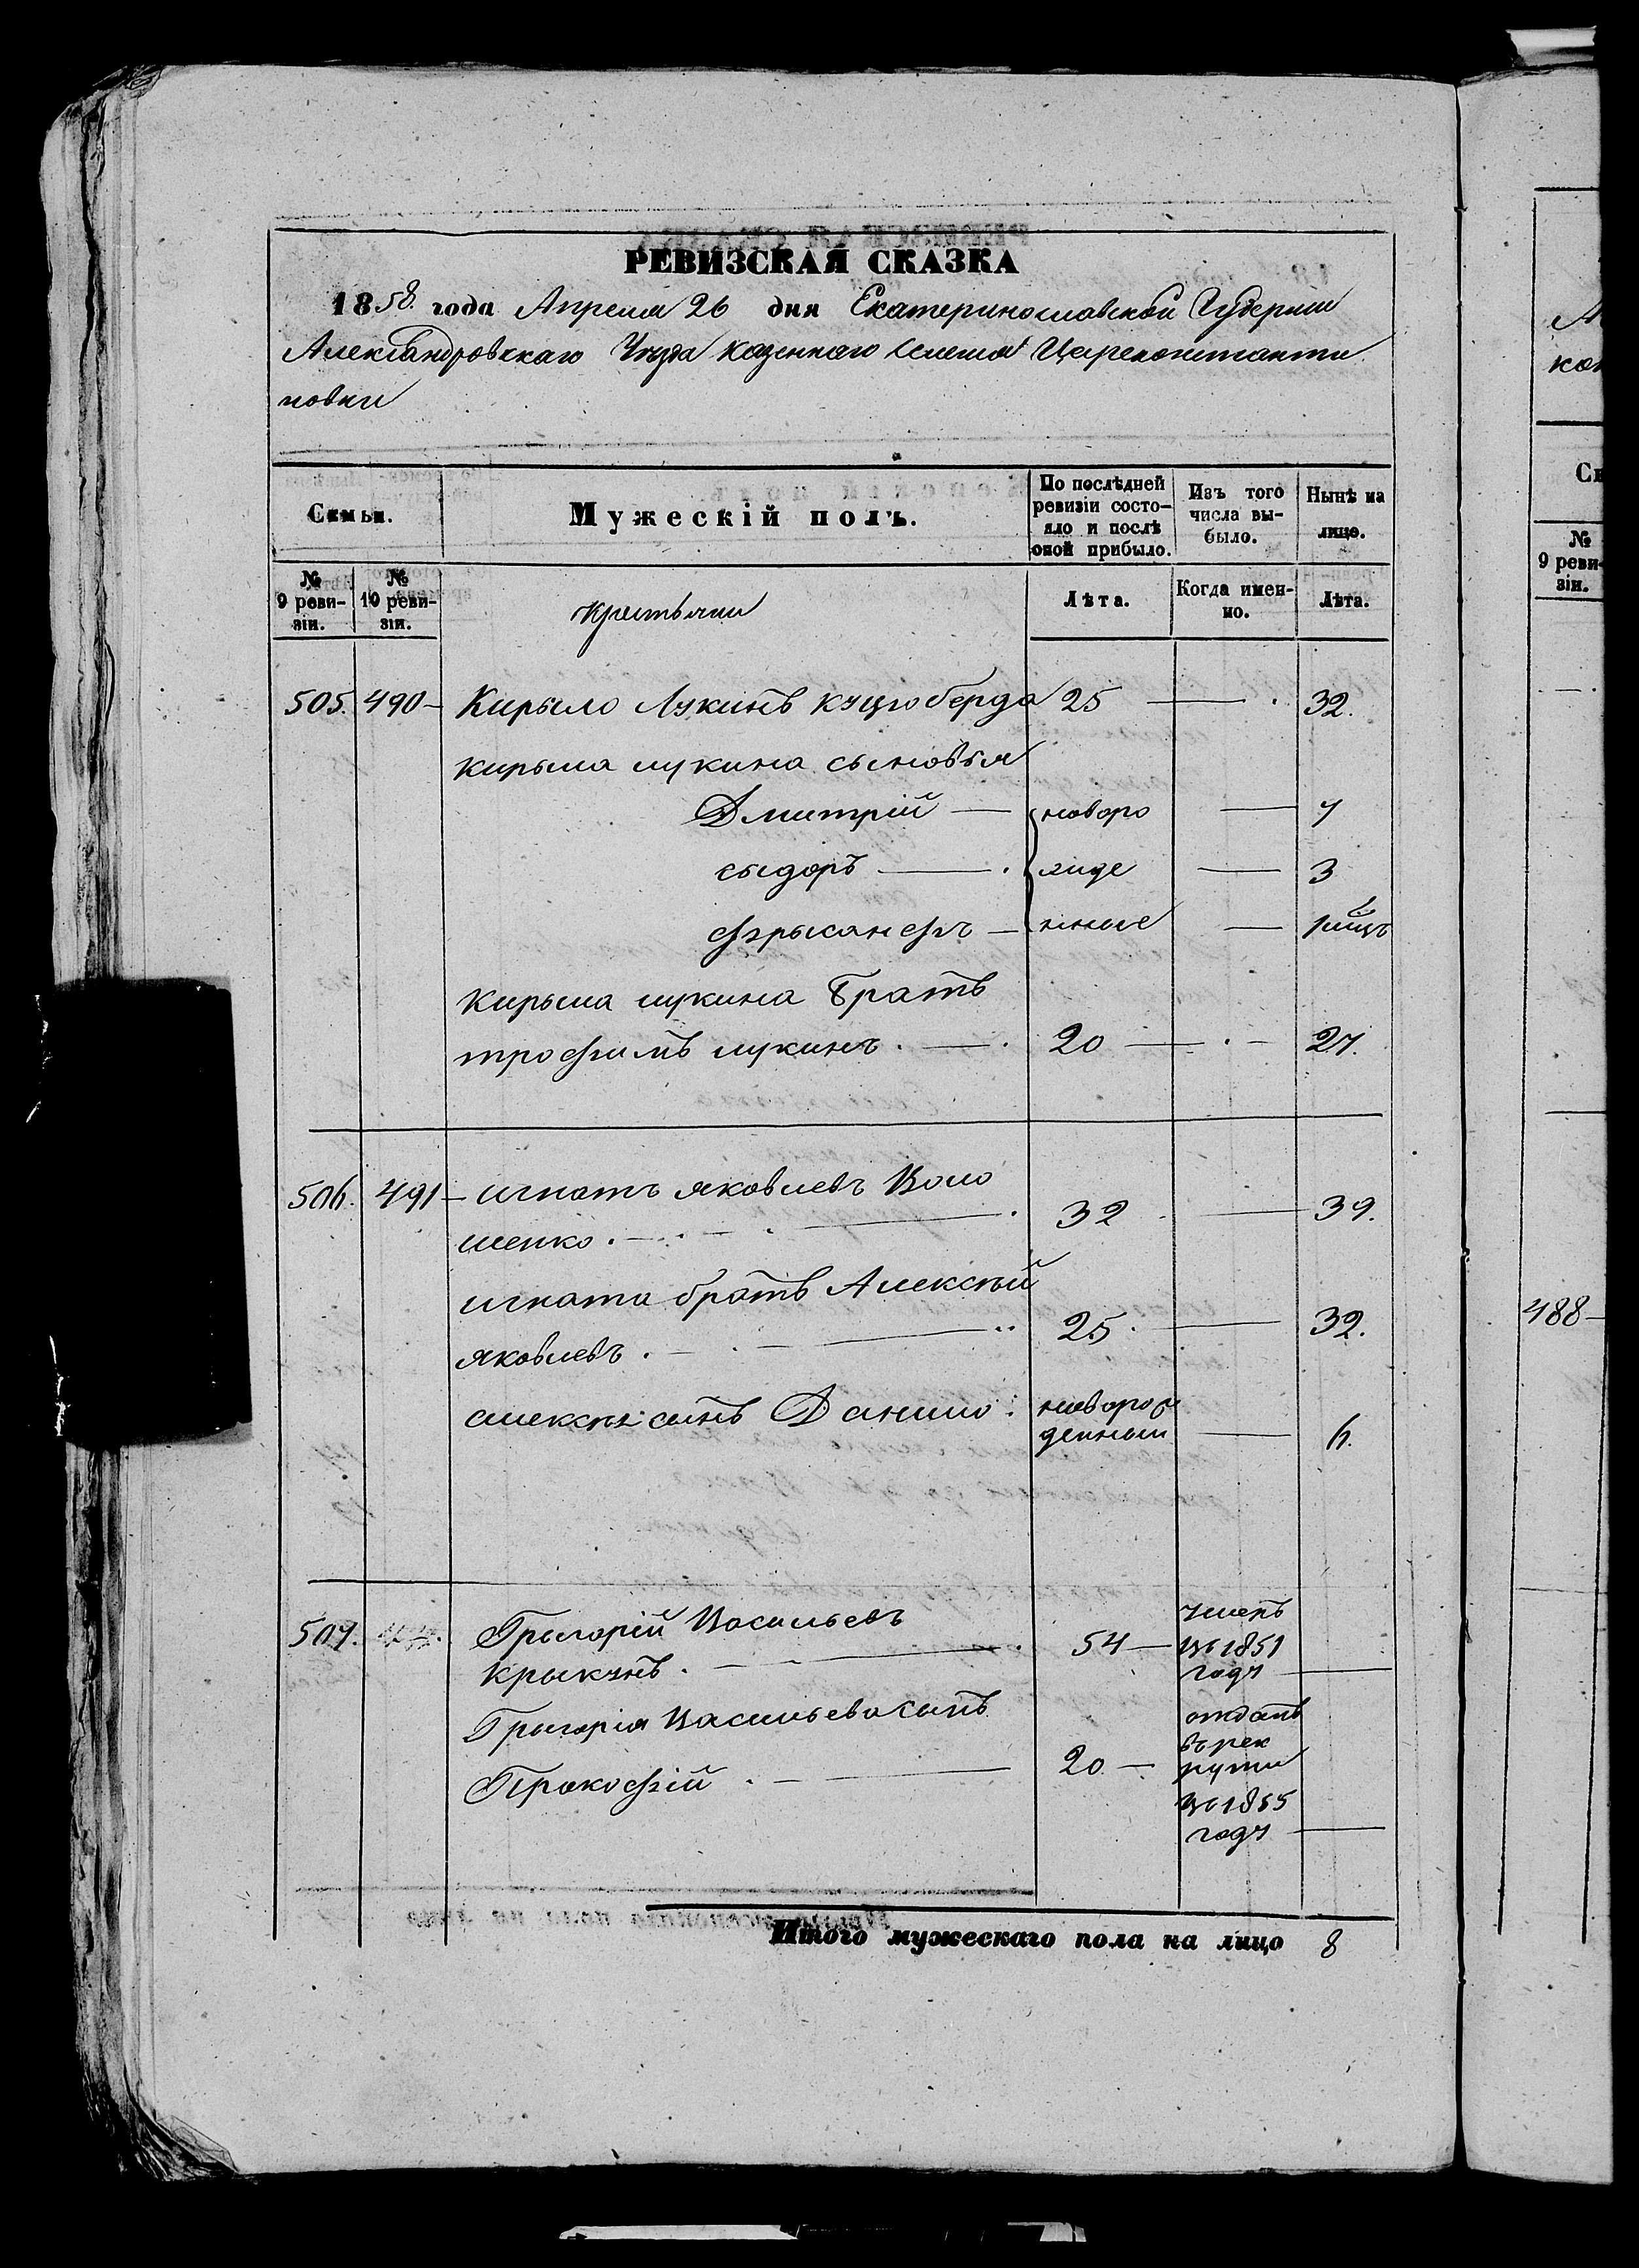 РЕВИЗСКАЯ СКАЗКА
1858 года Апреля 26 дня Екатеринославской Губернии
Александровскаго Уезда казеннаго селения Цареконстанти
новки
Семьи.
Мужескій полъ.
По послѣдней ревизіи состо-
яло и послѣ
оной прибыло.
Изъ того
числа вы-
было.
Нынѣ на
лицо.
№
9 реви-
зіи.
№
10 реви-
зіи.
крестьяни
Лѣта.
Когда имен-
но.
Лѣта.
505. 490 Кирыло Лукинъ куцоберда 25 32.
кирыла лукина сыновья
Дмитрій новоро 7
сыдоръ жде 3
хрысанфъ нные
кирыла лукина братъ
трофимъ лукинъ 20 27.
506. 491 игнатъ яковлевъ Воло
шенко 32 39.
игната братъ Алексѣй
яковлевъ 25 32.
алексѣя сынъ Данило новоро
жденный 6.
507. Григорій Васильевъ
крыкунъ 54
умеръ
въ 1851
году
Григорія Васильева сынъ
Прокофій 20
отданъ
въ рек
руты
въ 1855
году
Итого мужескаго пола на лицо 8
№
9 реви-
зіи.
488